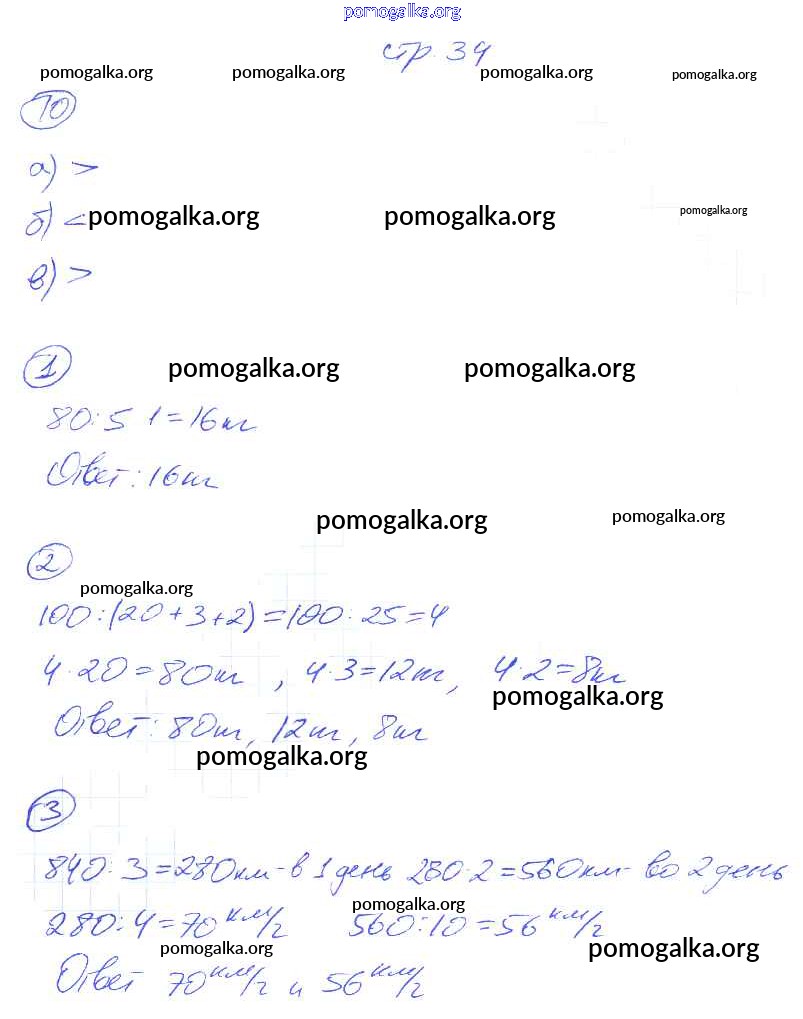 pomogalka.org
стр. 34
pomogalka.org pomogalka.org pomogalka.org pomogalka.org
10
а) >
б) < pomogalka.org pomogalka.org pomogalka.org
в) >
1 pomogalka.org pomogalka.org
80:5·1=16кг
Ответ: 16кг
pomogalka.org pomogalka.org
2
pomogalka.org
100:(20+3+2)=100:25=4
4·20=80кг, 4·3=12кг, 4·2=8кг
pomogalka.org
Ответ: 80кг, 12кг, 8кг
pomogalka.org
3
840:3=280км-в 1 день 280·2=560км-во 2 день
pomogalka.org
280:4=70 км/г 560:10=56 км/г
pomogalka.org pomogalka.org
Ответ 70 км/г и 56 км/г